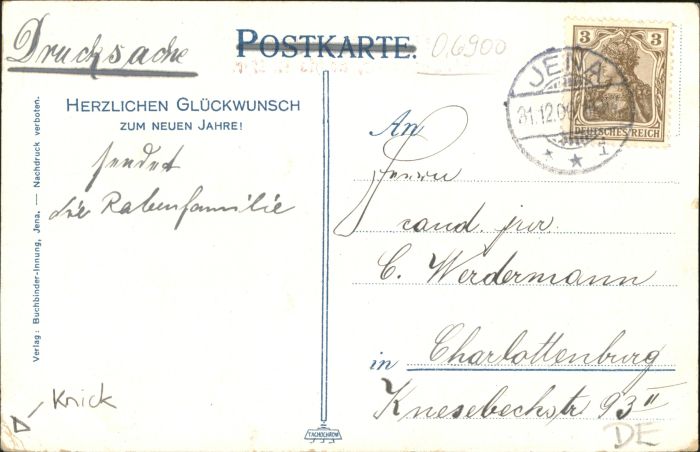 Drucksache
POSTKARTE.
0,6900
3 3
DEUTSCHES REICH
JENA
31.12.09
* * 1
HERZLICHEN GLÜCKWUNSCH
ZUM NEUEN JAHRE!
sendet
die Rabenfamilie
An
Herrn
cand. jur.
C. Werdermann
in Charlottenburg
Knesebeckstr 93 II
DE
Knick
Verlag: Buchbinder-Innung, Jena. — Nachdruck verboten.
TACHOCHROM